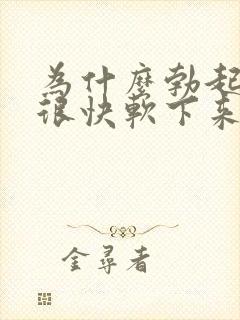 為什麼勃起
很快軟下來
金尋者